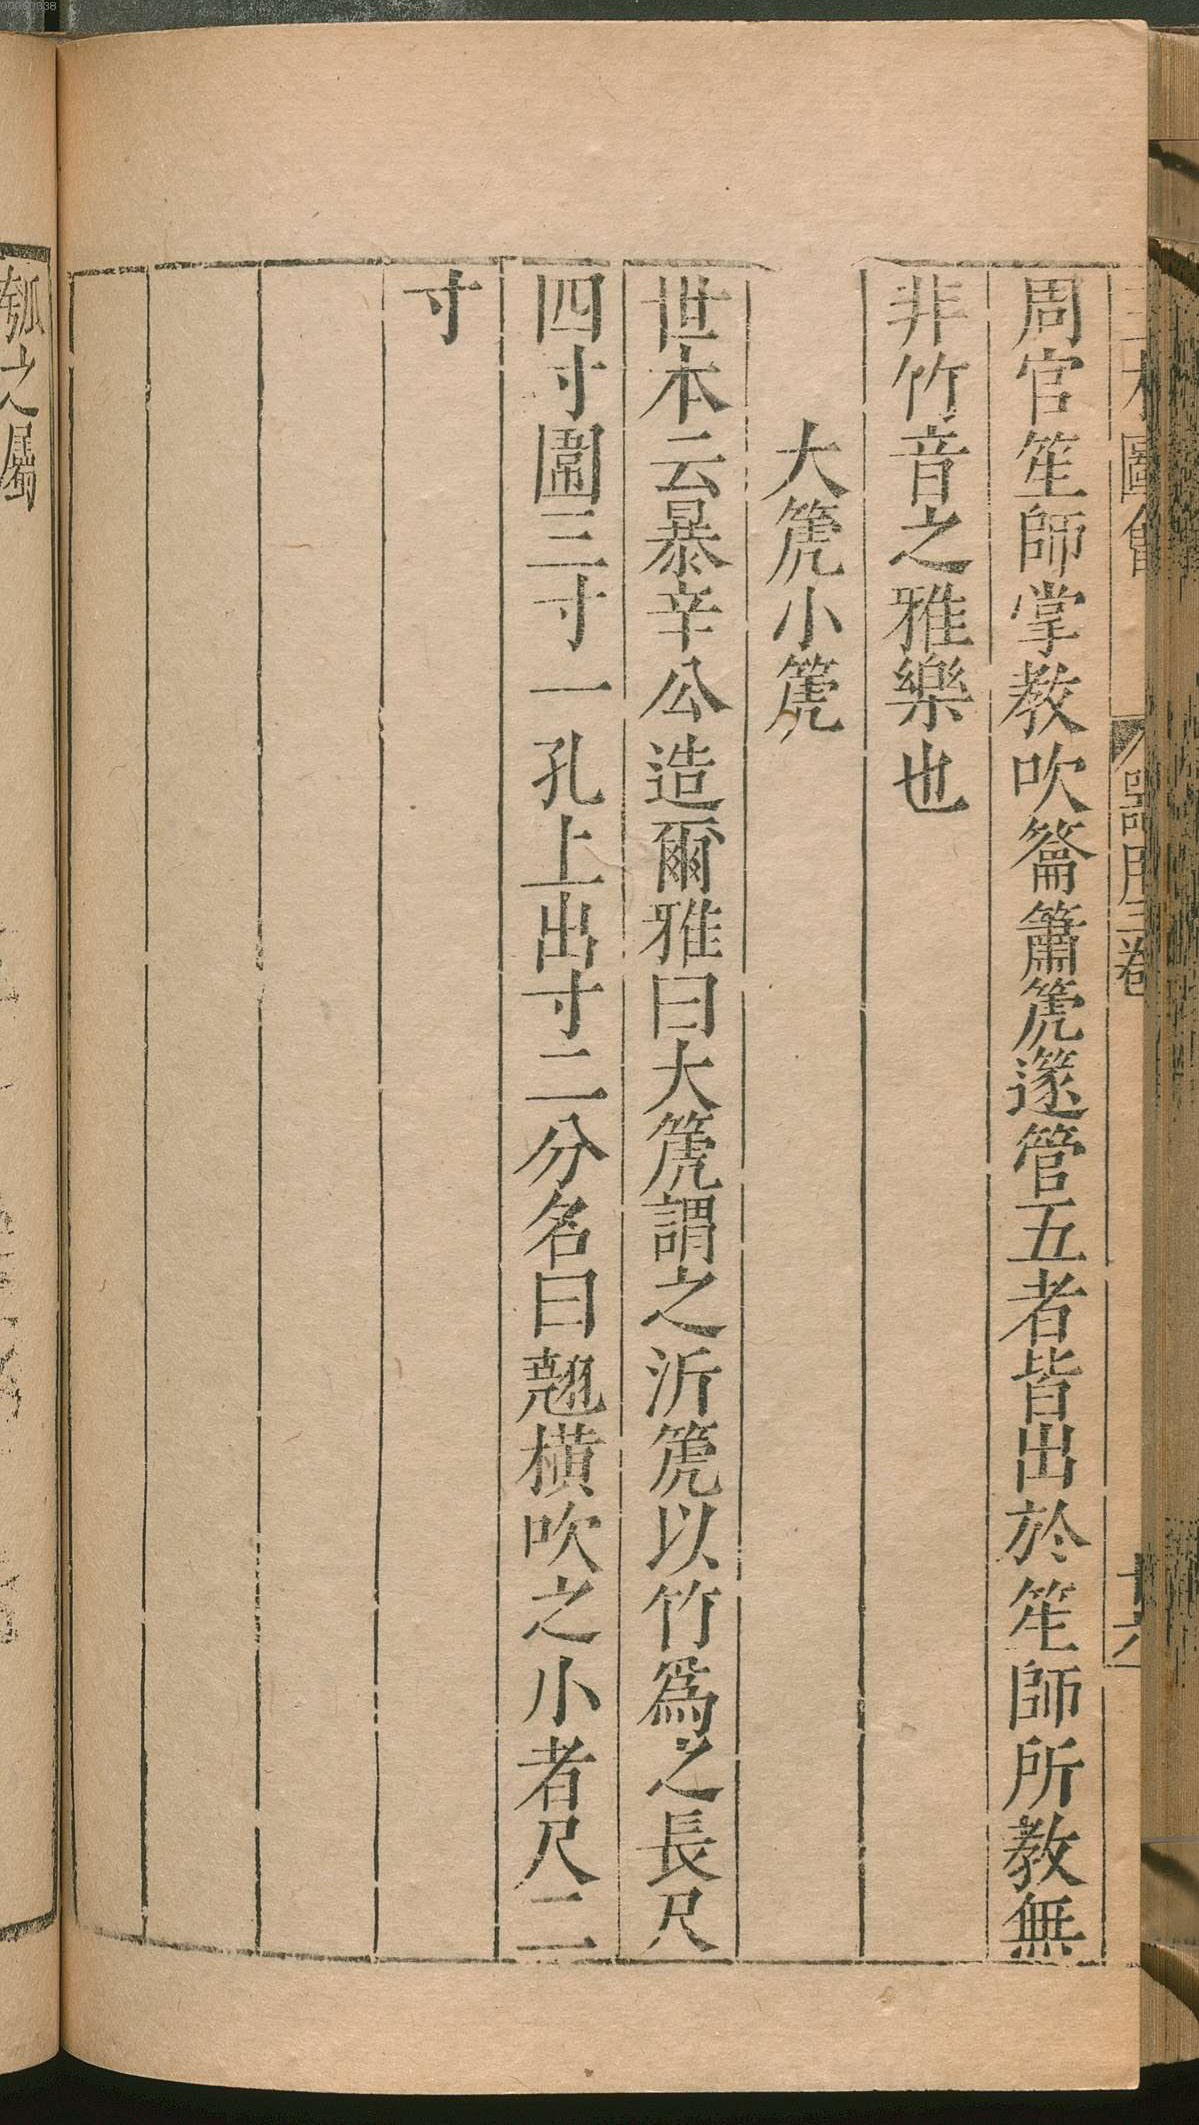 三才圖會
器用三卷
廿六
周官笙師掌教吹籥簫篪篴管五者皆出於笙師所教無
非竹音之雅樂也
大篪小篪
世本云暴辛公造爾雅曰大篪謂之沂篪以竹為之長尺
四寸圍三寸一孔上出寸二分名曰翹橫吹之小者尺二
寸
瓠之屬
00050338